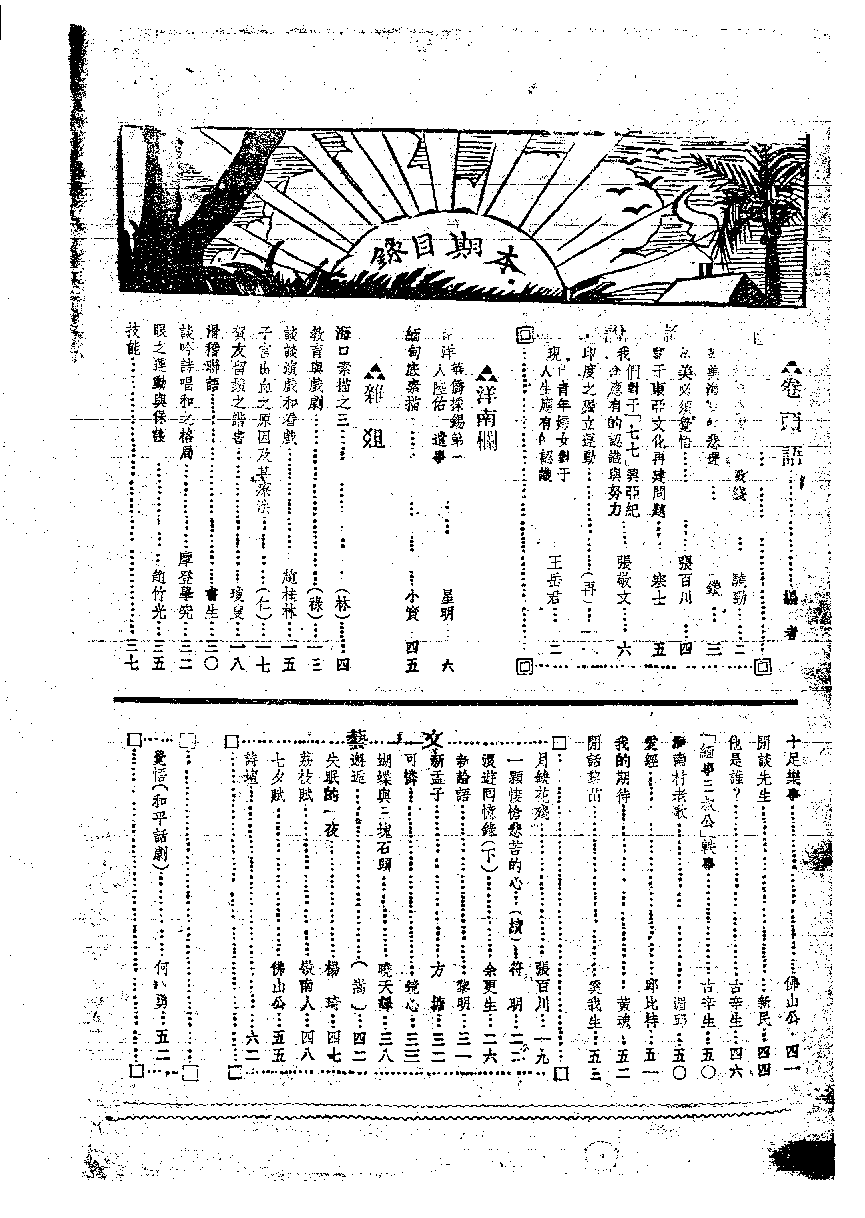 本期目錄
卷頭語……編者
……曉勁…二
……三
英必須覺悟……張百川…四
關于東亞文化再建問題…寒士 五
我們對于「七七」興亞紀
念應有的認識與努力……張敬文…六
印度之獨立運動……(再)…
現代青年婦女對于
人生應有的認識 王岳君…二
南洋欄
華僑採錫第一
洋人陸佑 遺事……星明…六
緬甸底素描……小寳…四五
雜俎
海口素描之三……(林)…四
教育與戲劇……(祿)…一三
談談演戲和看戲……趙桂林…一五
子宮出血之原因及其療法…(仁)…一七
賀友留鬚之諧書……瓊叟…一八
滑稽聯語……書生…三〇
談吟詩唱和之格局……摩登學究…三二
眼之運動與保護……趙竹光…三五
技能……三七
十足樂事……佛山公…四一
閒談先生……新民…四四
他是誰?……古辛生…四六
「緬學三叔公」軼事……古辛生…五〇
海南村老歌……五〇
愛經……邱比特…五一
我的期待……黃魂…五二
閒話……我生…五三
文藝
月缺花殘……張百川…一九
一顆悽愴悲苦的心…(續)…符 明…二二
漫遊回憶錄(下)……余更生…二六
新論語……黎明…三一
新孟子……方 …三二
可憐……鏡心…三三
蝴蝶與三塊石頭……曉天譯…三八
邂逅……(嵩)…四二
失眠的一夜……楊 琦…四七
荔枝賦……嶺南人…四八
七夕賦……佛山公…五五
詩壇……六二
覺悟(和平話劇)……何 勇…五二